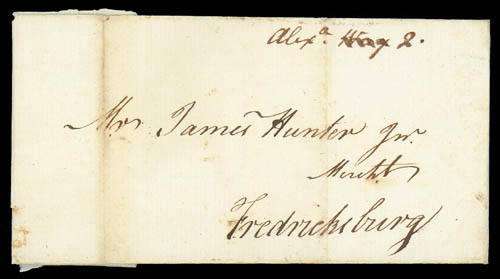 Alexa. 2.
Mr. James Hunter Jur.
Mercht.
Fredricksburg